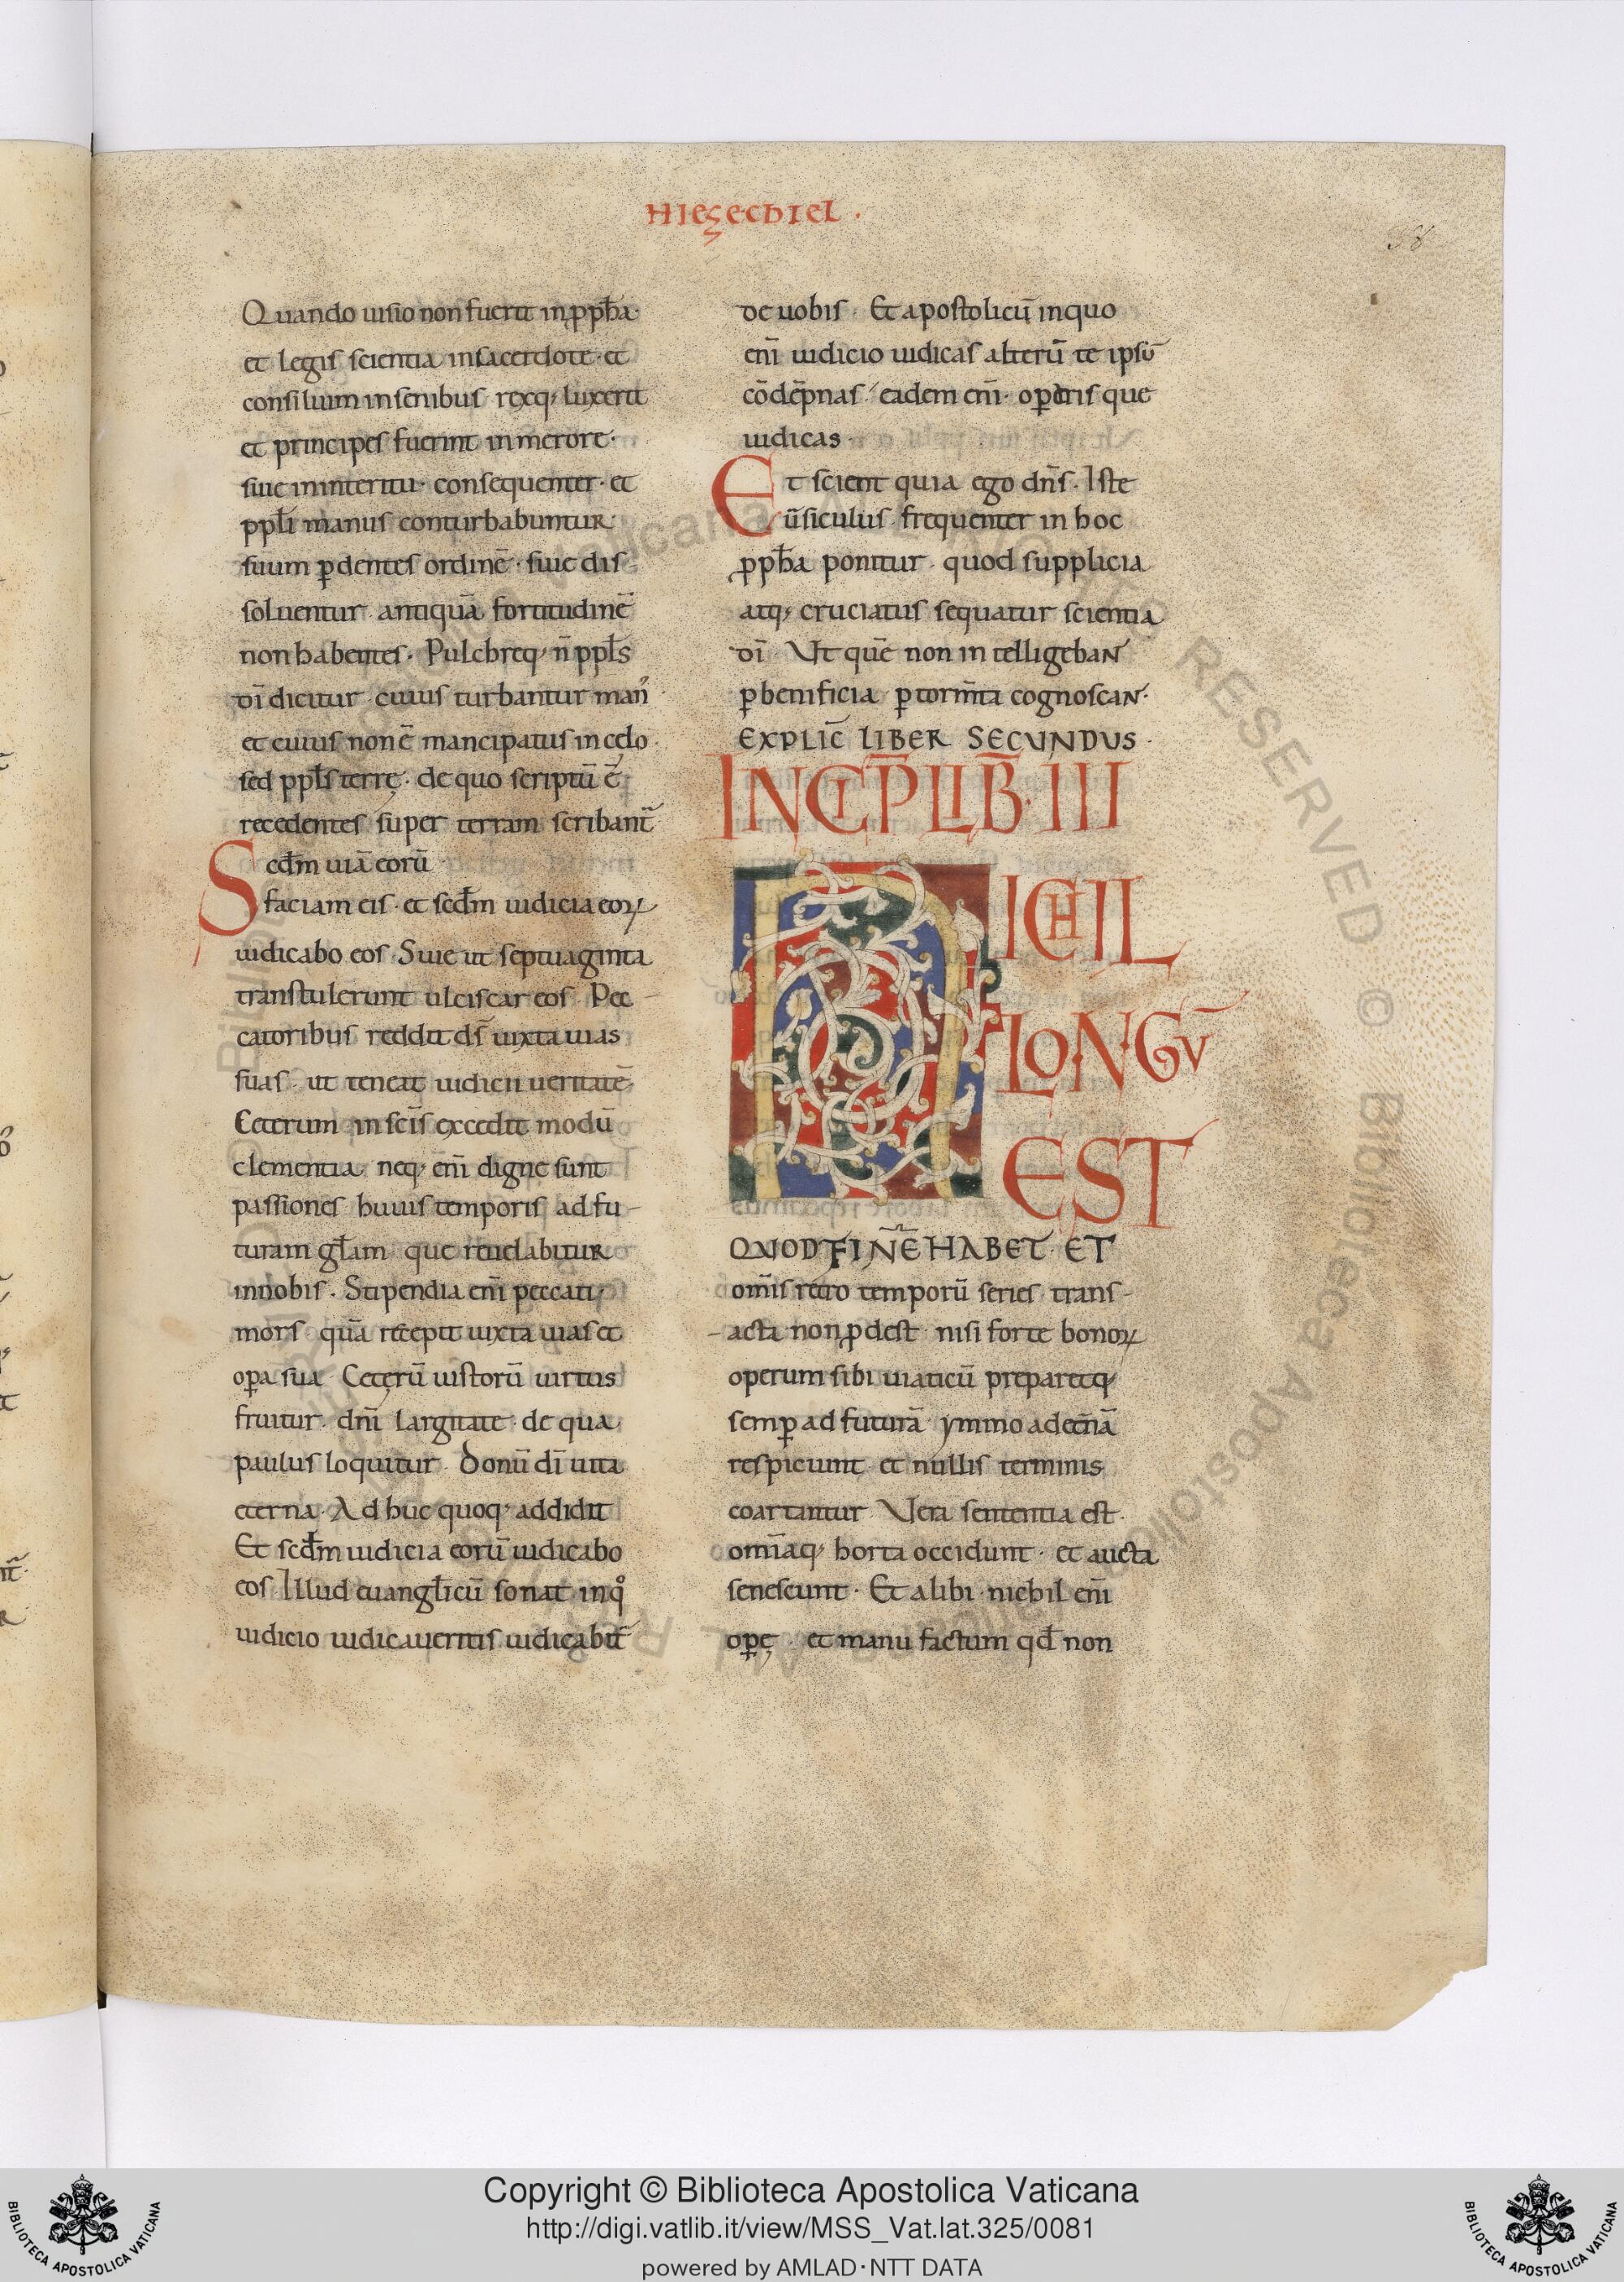 HIEZECHIEL.
38
Quando uisio non fuerit in ppħa·
et legis scientia in sacerdote· et
consilium in senibus rexq; luxerit
et principes fuerint in merore·
siue in interitu· consequenter· et
ppl̄i manus conturbabuntur·
suum p̄dentes ordinē· siue dis
soluentur antiquā fortitudinē
non habentes. Pulchreq; n̄ ppl̄s
dī dicitur cuius turbantur man᷒
et cuius non ē mancipatus in cęlo·
sed ppl̄s terrę· de quo scriptū ē
recedentes super terram scribant᷒
Scd̄m uiā eorū
faciam eis· et scd̄m iudicia eoꝝ
iudicabo eos. Siue ut septuaginta
transtulerunt ulciscar eos Pec
catoribus reddit ds̄ iuxta uias
suas· ut teneat iudicii ueritatē·
Ceterum in sc̄is excedit modū
clementia neq; eni̅ digne sunt
passiones huius temporis ad fu-
turam gl̄am que reuelabitur
in nobis. Stipendia eni̅ peccati·
mors quā recepit iuxta uias et
oꝑa sua Ceterū iustorū uirtus
fruitur dni̅ largitate· de qua
paulus loquitur Donū dī uita
eterna· Ad huc quoq; addidit
Et scd̄m iudicia eorū iudicabo
eos Illud euangl̄icū sonat in qͦ
iudicio iudicaueritis iudicabit᷒
de uobis· Et apostolicū in quo
eni̅ iudicio iudicas alterū te ipsū
cōdēpnas· eadem eni̅· oꝑeris que
iudicas·
Et scient quia ego dn̄s. Iste
ūsiculus frequenter in hoc
ppħa ponitur quod supplicia
atq; cruciatus sequatur scientia
dī Vt quē non intelligebaɴ
ꝑ benificia ꝑ torm̄ta cognoscaɴ·
EXPLIC̄ LIBER SECUNDUS·
INCIP̄ LIB̄· III
NICHIL
LO·N·GŪ
EST
QVOD FINĒ HABET ET
om̄is retro temporū series trans-
acta non ꝓdest nisi forte bonoꝝ
operum sibi uiaticū preparetq;
semꝑ ad futurā ymmo ad et̄nā
respiciunt et nullis terminis
coartantur Vera sententia est·
omi̅aq; horta occidunt· et aucta
senescunt· Et alibi· nichil eni̅
oꝑę et manu factum qd̄ non
Copyright © Biblioteca Apostolica Vaticana
http://digi.vatlib.it/view/MSS_Vat.lat.325/0081
powered by AMLAD·NTT DATA
BIBLIOTECA APOSTOLICA VATICANA
BIBLIOTECA APOSTOLICA VATICANA